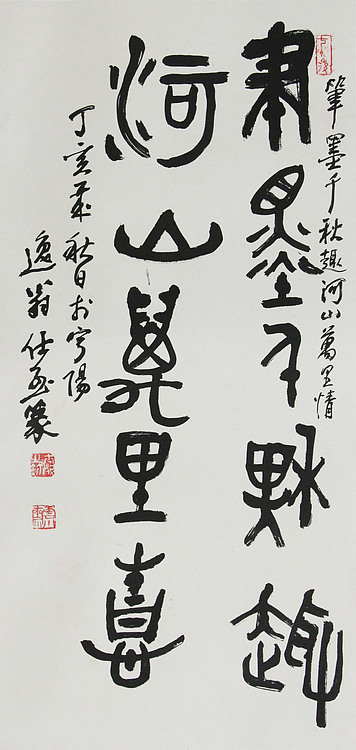 筆墨千秋趣河山萬里情
筆墨千秋趣
河山萬里情
丁亥歲秋日於寧陽
翁任篆